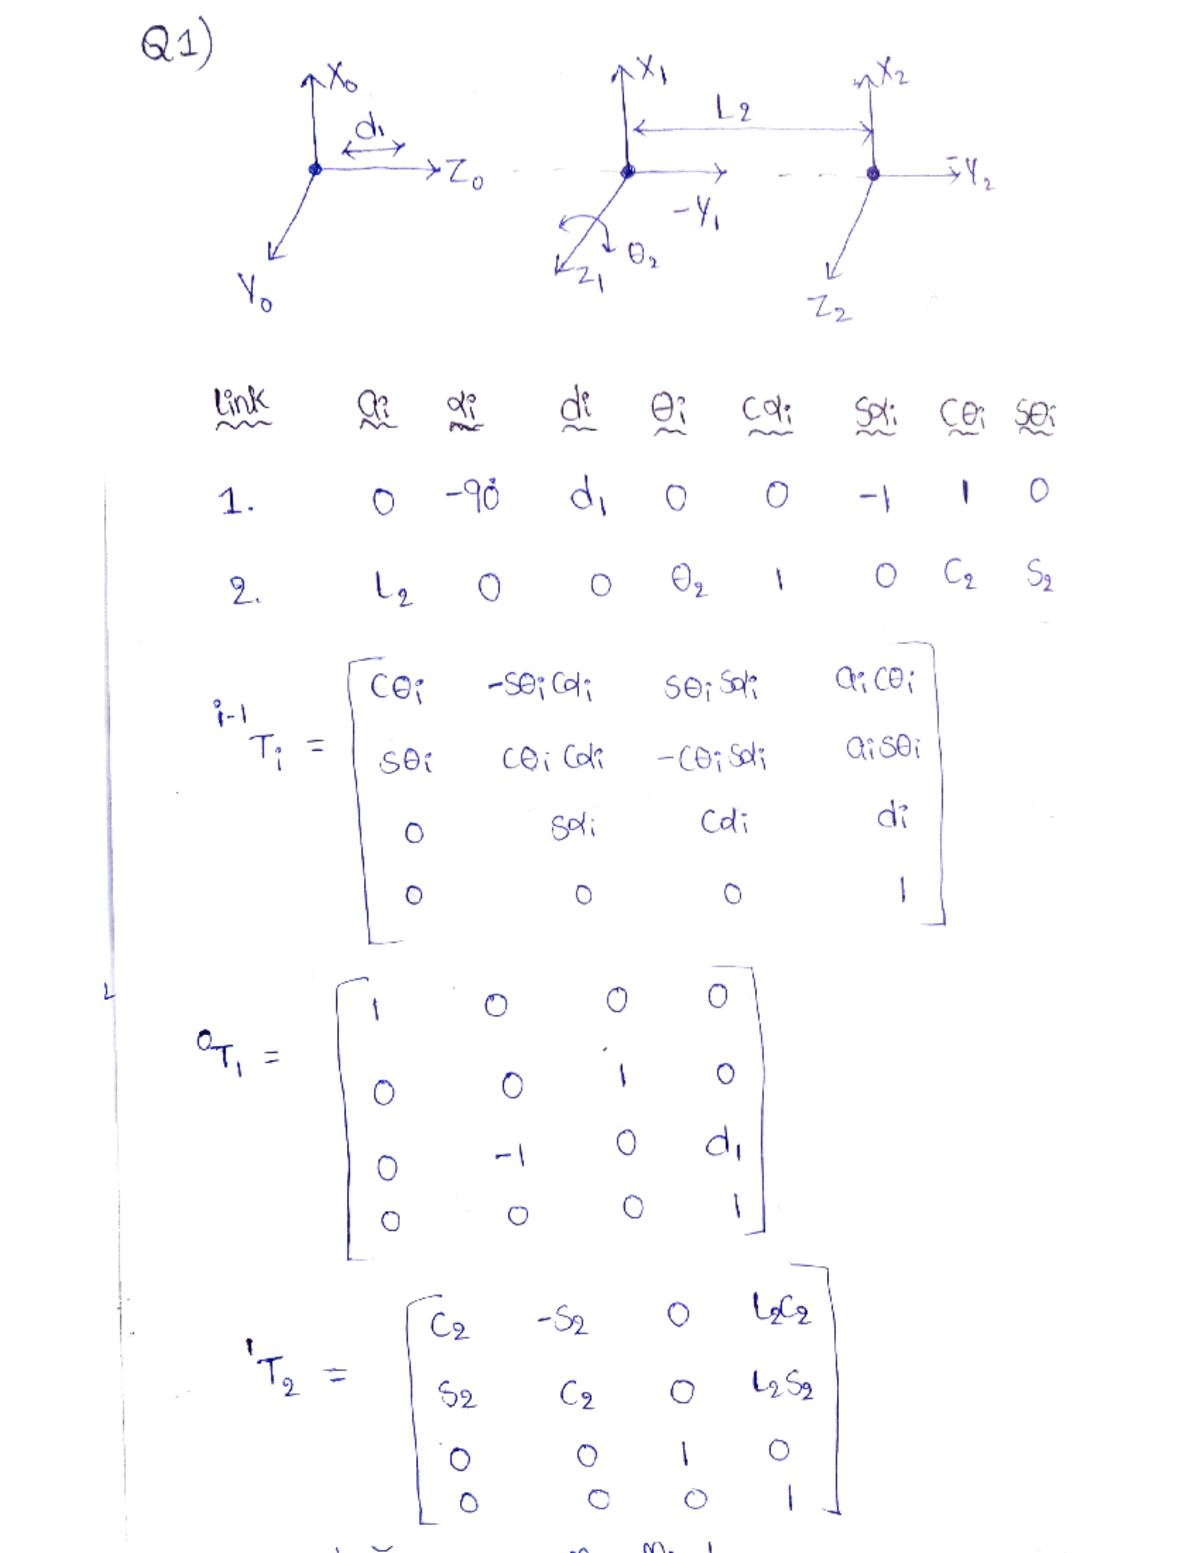 Q1)
X₀ X₁ X₂
d₁ L₂
Z₀ -Y₁ -Y₂
Y₀ Z₁ θ₂ Z₂
Link aᵢ αᵢ dᵢ θᵢ Cαᵢ Sαᵢ Cθᵢ Sθᵢ
1. 0 -90° d₁ 0 0 -1 1 0
2. L₂ 0 0 θ₂ 1 0 C₂ S₂
Cθᵢ -SθᵢCαᵢ SθᵢSαᵢ aᵢCθᵢ
ⁱ⁻¹Tᵢ = Sθᵢ CθᵢCαᵢ -CθᵢSαᵢ aᵢSθᵢ
0 Sαᵢ Cαᵢ dᵢ
0 0 0 1
1 0 0 0
⁰T₁ = 0 0 1 0
0 -1 0 d₁
0 0 0 1
C₂ -S₂ 0 L₂C₂
¹T₂ = S₂ C₂ 0 L₂S₂
0 0 1 0
0 0 0 1